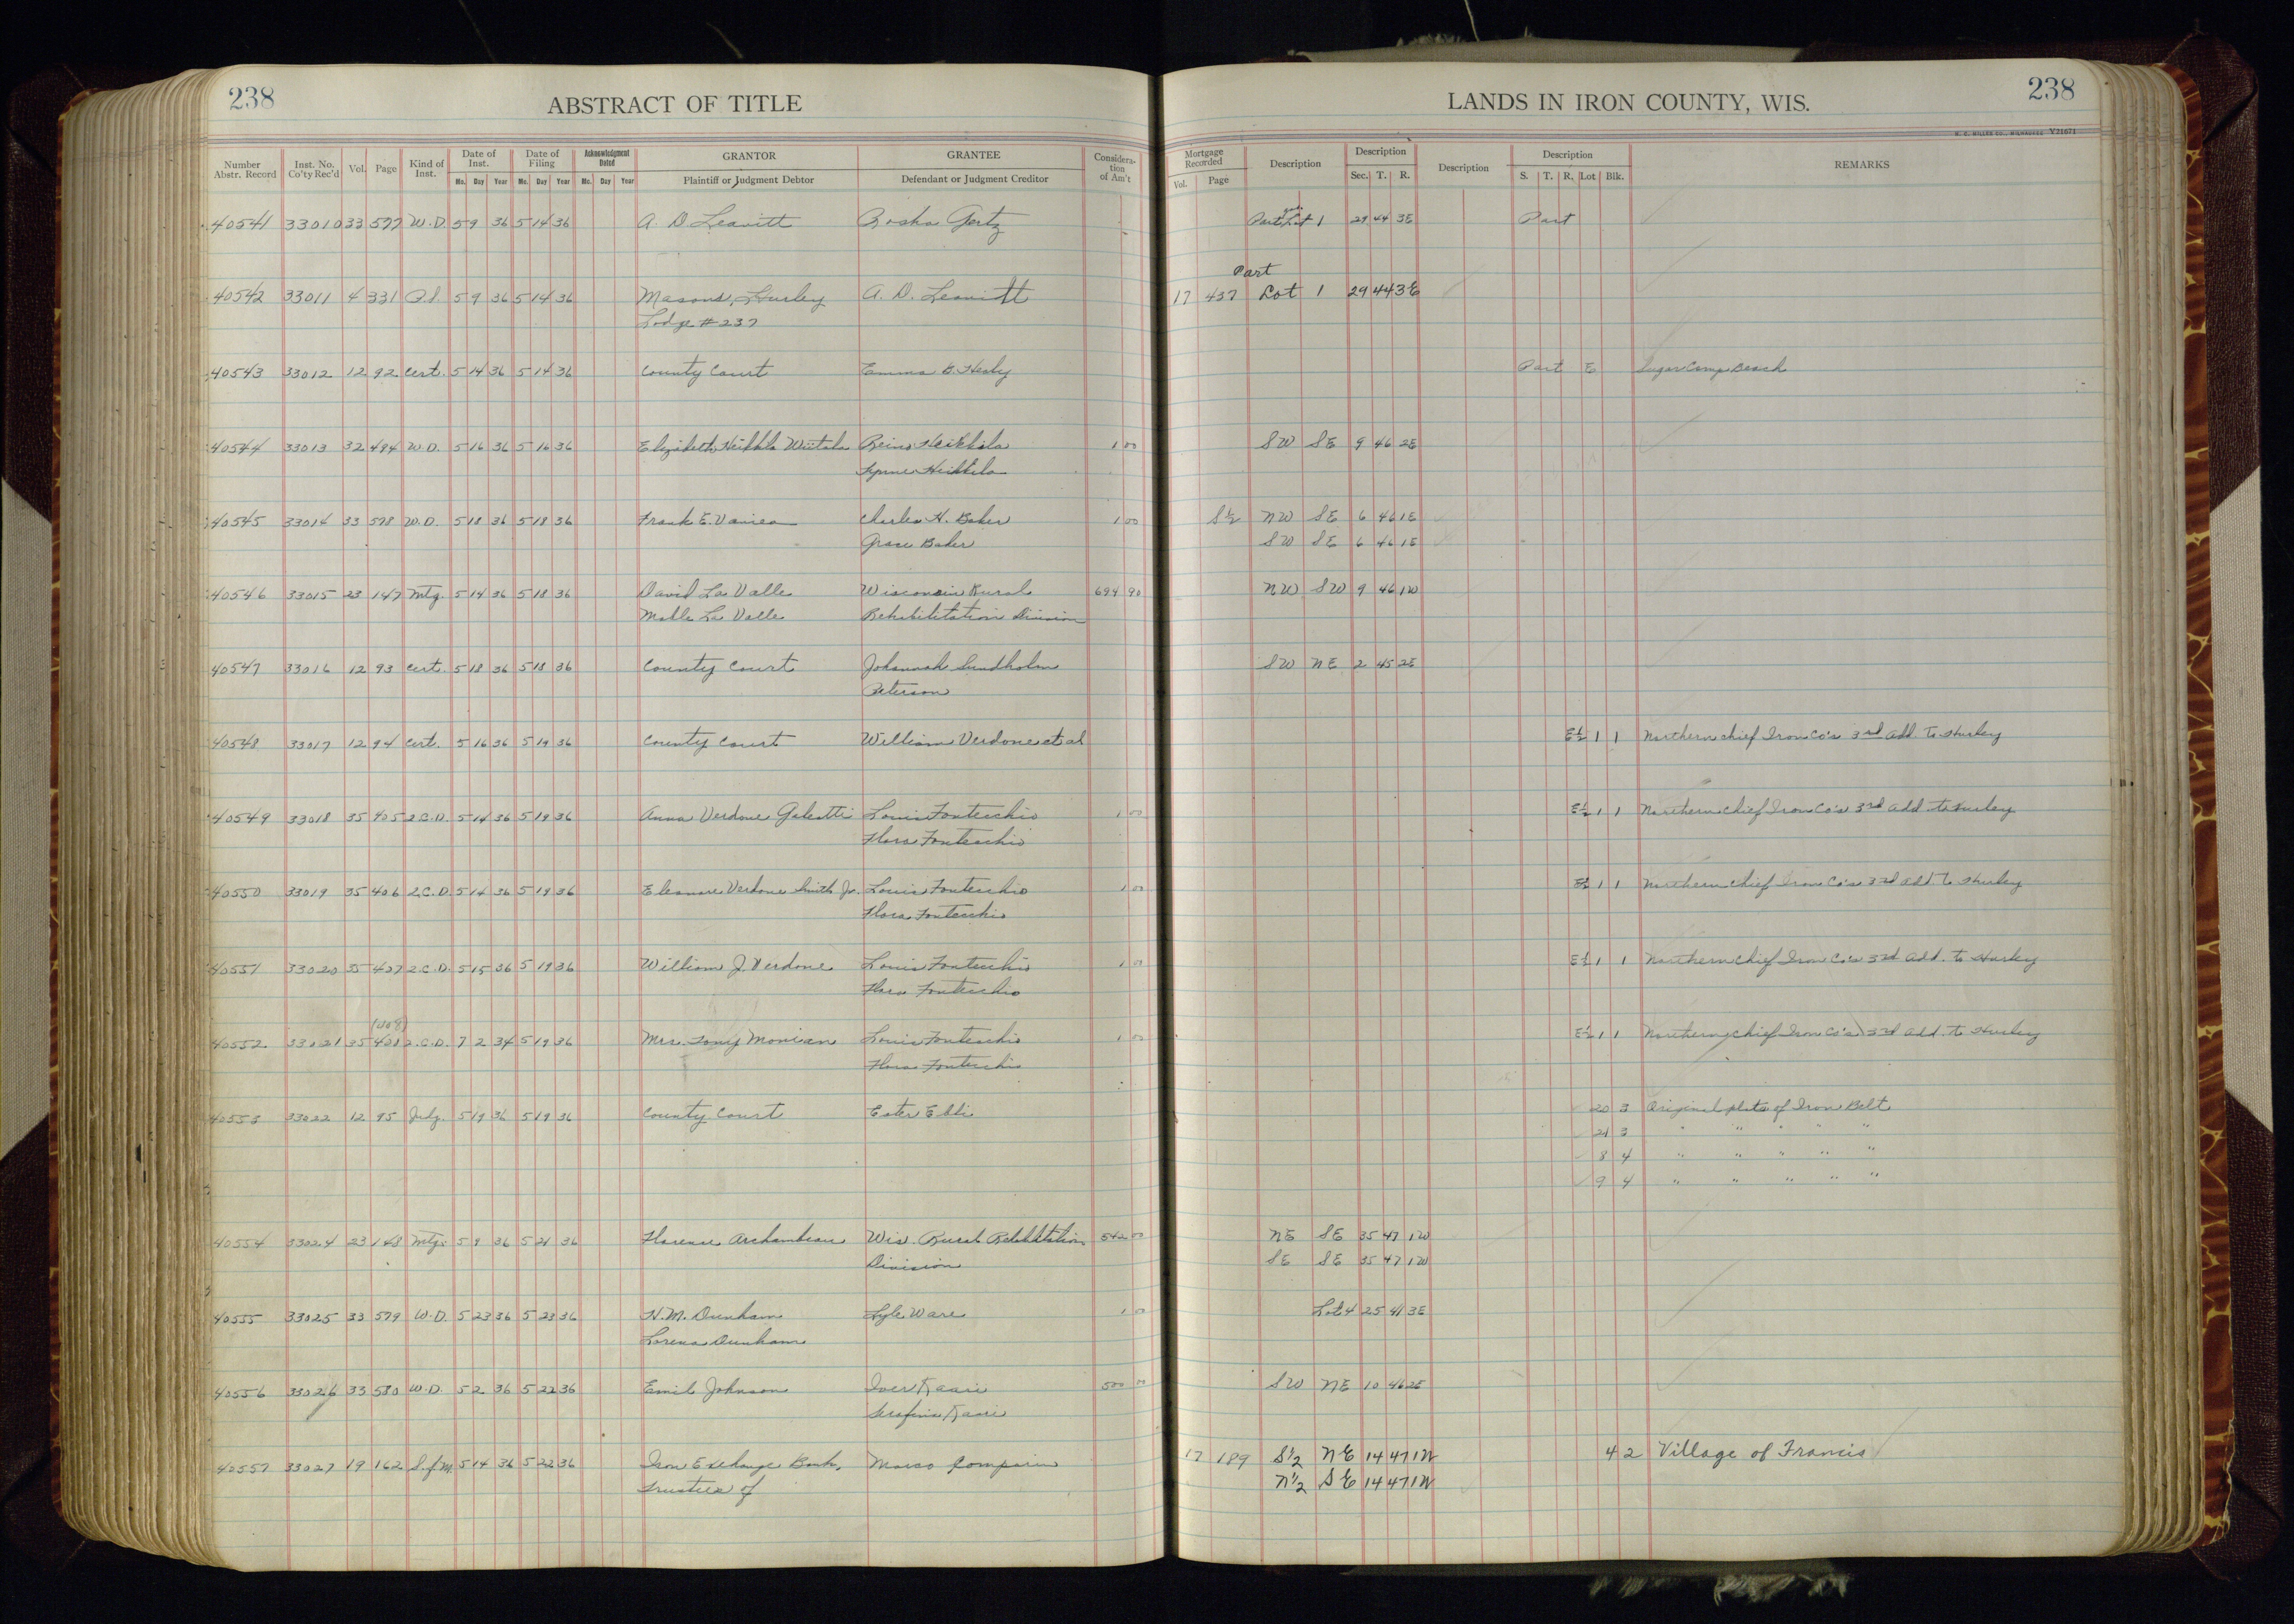 238
ABSTRACT OF TITLE
LANDS IN IRON COUNTY, WIS.
238
H. C. MILLER CO., MILWAUKEE Y21671
Number Abstr. Record Inst. No. Co'ty Rec'd Vol. Page Kind of Inst. Date of Inst. Mo. Day Year Date of Filing Mo. Day Year Acknowledgment Dated Mo. Day Year GRANTOR Plaintiff or Judgment Debtor GRANTEE Defendant or Judgment Creditor Considera-tion of Am't Mortgage Recorded Vol. Page Description Description Sec. T. R. Description Description S. T. R. Lot Blk. REMARKS
40541 33010 33 577 W.D. 5 9 36 5 14 36 A. D. Leavitt Rosha Gertz Part Lot 1 29 44 3E Part
Part
40542 33011 4 331 5 9 36 5 14 36 Masons, Hurley A. D. Leavitt 17 437 Lot 1 29 44 3E
Lodge #237
40543 33012 12 92 Cert. 5 14 36 5 14 36 County Court Emma B. Healy Part E Sugar Camp Beach
40544 33013 32 494 W.D. 5 16 36 5 16 36 Elizabeth Heikkila Wiitala Reino Heikkila 1 00 SW SE 9 46 2E
Heikkila
40545 33014 33 578 W.D. 5 18 36 5 18 36 Frank E. Charles H. Baker 1 00 S½ NW SE 6 46 1E
Grace Baker SW SE 6 46 1E
40546 33015 23 147 Mtg. 5 14 36 5 18 36 David La Valle Wisconsin Rural 694 90 NW SW 9 46 1W
Mable La Valle Rehabilitation Division
40547 33016 12 93 Cert. 5 18 36 5 18 36 County Court Johannah Sundholm SW NE 2 45 2E
Peterson
40548 33017 12 94 Cert. 5 16 36 5 19 36 County Court William Verdone et al E½ 1 1 Northern Chief Iron Co's 3rd Add. to Hurley
40549 33018 35 405 2.C.D. 5 14 36 5 19 36 Anna Verdone Galeotti Louis Fontecchio 1 00 E½ 1 1 Northern Chief Iron Co's 3rd Add. to Hurley
Flora Fontecchio
40550 33019 35 406 2.C.D. 5 14 36 5 19 36 Eleanore Verdone Smith Jr. Louis Fontecchio 1 00 E½ 1 1 Northern Chief Iron Co's 3rd Add. to Hurley
Flora Fontecchio
40551 33020 35 407 2.C.D. 5 15 36 5 19 36 William J. Verdone Louis Fontecchio 1 00 E½ 1 1 Northern Chief Iron Co's 3rd Add. to Hurley
Flora Fontecchio
(408)
40552 33021 35 401 2.C.D. 7 2 34 5 19 36 Mrs. Tony Louis Fontecchio 1 00 E½ 1 1 Northern Chief Iron Co's 3rd Add. to Hurley
Flora Fontecchio
40553 33022 12 95 Judg. 5 19 36 5 19 36 County Court Ester Ebli 20 3 Original plat of Iron Belt
21 3 " " " " "
8 4 " " " " "
9 4 " " " " "
40554 33024 23 148 Mtg. 5 9 36 5 21 36 Florence Archambeau Wis. Rural Rehabilitation 542 00 NE SE 35 47 1W
Division SE SE 35 47 1W
40555 33025 33 579 W.D. 5 23 36 5 23 36 H. M. Dunham Lyle Ware 1 00 Lot 4 25 41 3E
Lorena Dunham
40556 33026 33 580 W.D. 5 2 36 5 22 36 Emil Johnson Iver Kaari 500 00 SW NE 10 46 2E
Serafina Kaari
40557 33027 19 162 S.f.M. 5 14 36 5 22 36 Iron Exchange Bank, Marco 17 189 S½ NE 14 47 1W 4 2 Village of Francis
Trustees of N½ SE 14 47 1W